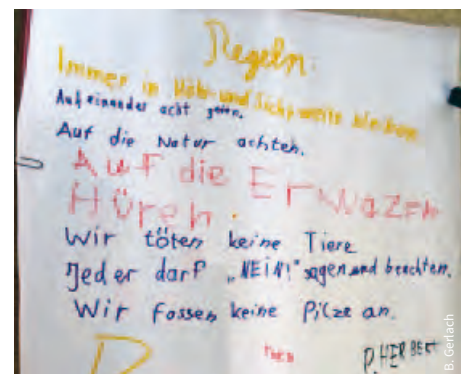 Regeln:
Immer in Hör- und Sichtweite bleiben
Aufeinander acht geben.
Auf die Natur achten.
Auf die Erwazen
Hören.
Wir töten keine Tiere
Jeder darf „NEIN!" sagen und beachten.
Wir fassen keine Pilze an.
P. HERBERT
B. Gerlach